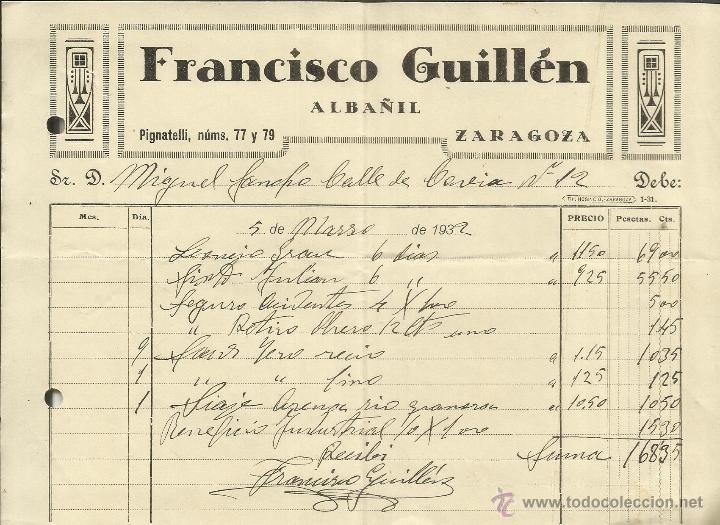 Francisco Guillén
ALBAÑIL
Pignatelli, núms. 77 y 79 ZARAGOZA
Sr. D. Miguel Sancho Calle de Nº 12 Debe:
1-31.
Mes. Día. PRECIO Pesetas. Cts.
5 de Marzo de 1932
6 dias a 11'50 69 00
Julian 6 " a 9'25 55 50
Seguro Acidentes 4 X 100 5 00
" Retiro Obrero 12 cts uno 1 45
9 Yeso recio a 1.15 10 35
1 " " fino a 1 25 1 25
1 Viaje Arena rio a 10,50 10 50
Beneficio Industrial 10 X 100 15 30
Recibi Suma 168 35
Francisco Guillén
www.todocoleccion.net